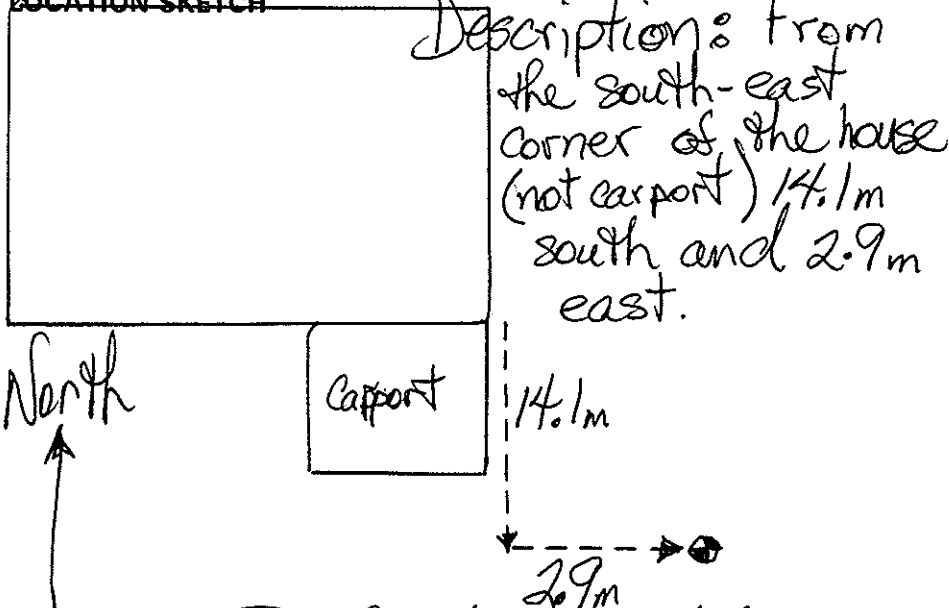 LOCATION SKETCH
Description: From
the south-east
corner of the house
(not carport) 14.1m
south and 2.9m
east.
North
Carport
14.1m
2.9m